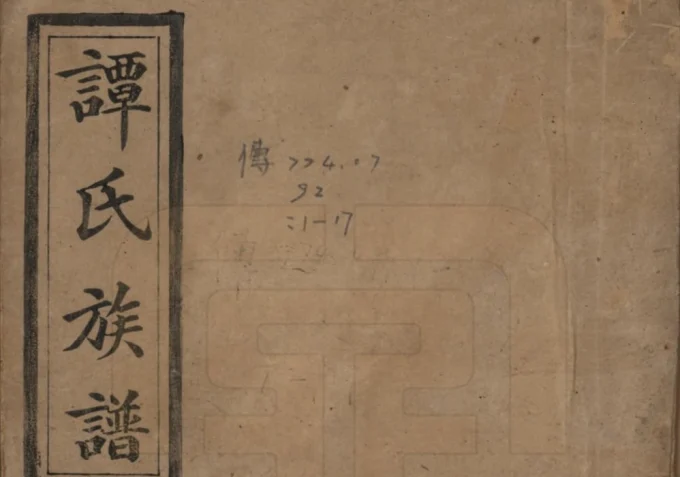 譚氏族譜
傳 224.07
92
:1-17